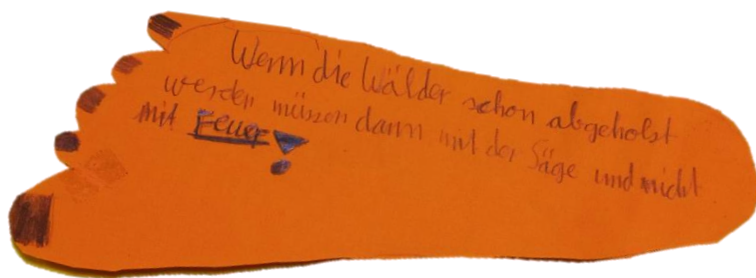 Wenn die Wälder schon abgeholst
werden müssen dann mit der Säge und nicht
mit Feuer!